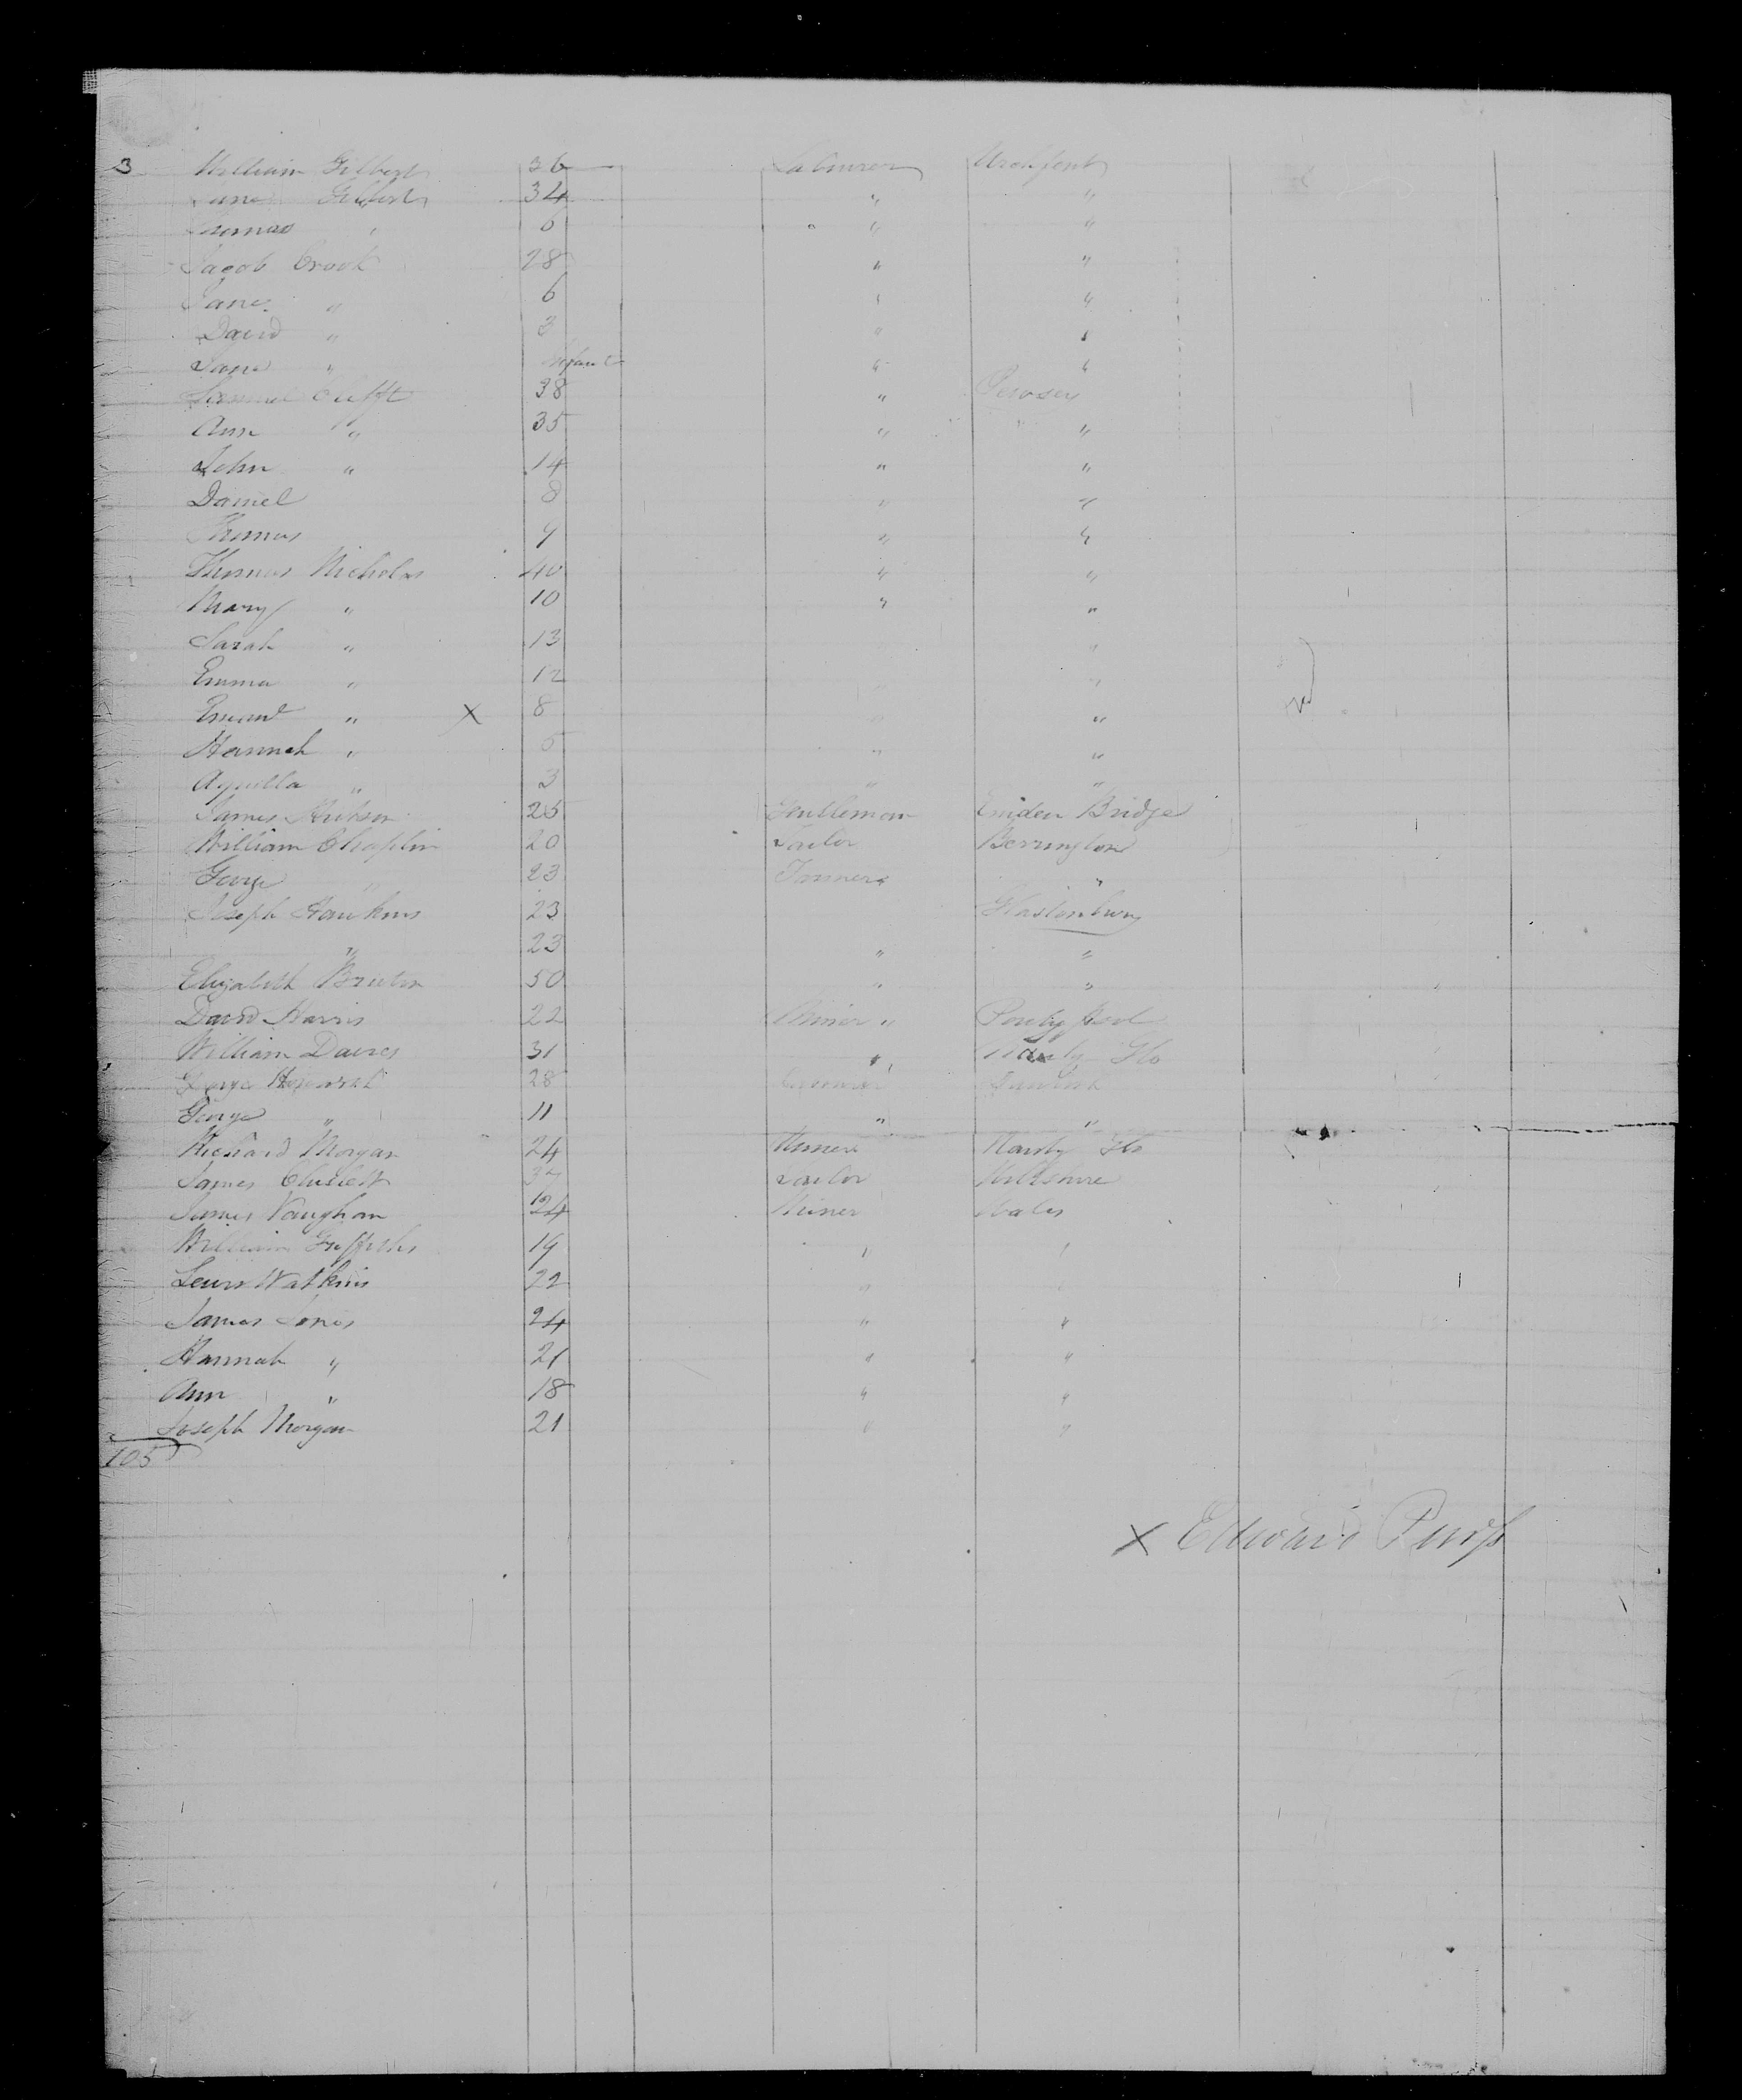 3 William Gilbert 36 Labourer Urchfont
Jane Gilbert 34 " "
Thomas " 6 " "
Jacob Crook 28 " "
James " 6 " "
David " 3 " "
Jane " Infant " "
Samuel Clifft 38 " Pewsey
Ann " 35 " "
John " 14 " "
Daniel 8 " "
Thomas 4 " "
Thomas Nicholas 40 " "
Mary " 10 " "
Sarah " 13 "
Emma " 12 " "
" X 8 " "
Hannah " 5 " "
Aquilla " 3 " "
James 25 Gentleman Bridge
William Chaplin 20 Sailor Berrington
George " 23 Farmer "
Joseph Hawkins 23 Glastonbury
" 23 " "
Elizabeth 50 " "
David Harris 22 Miner " Ponty Pool
William Davies 31 "
George 28
George " 11 " "
Richard Morgan 24 Miner
James 37 Sailor Wiltshire
James Vaughan 24 Miner Wales
William Griffiths 19 " "
Lewis Watkins 22 "
James Jones 24 " "
Hannah " 21 " "
Ann " 18 " "
Joseph Morgan 21 " "
105
X Edward